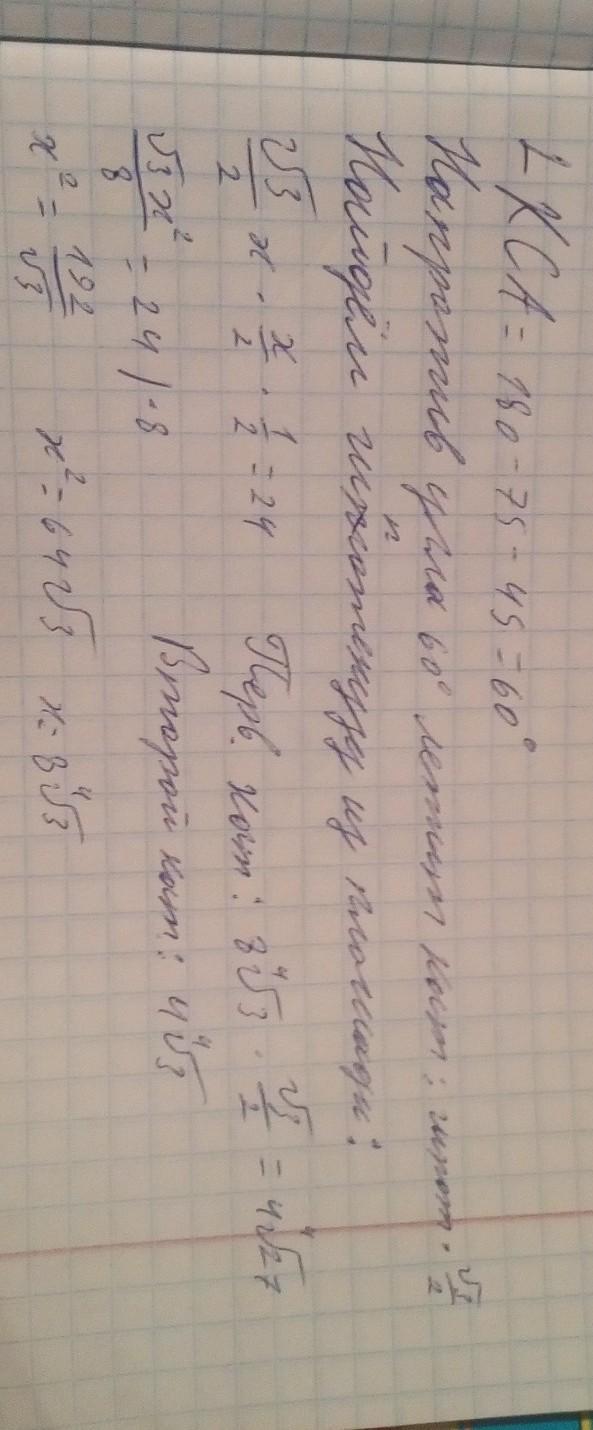 ∠KCA = 180 - 75 - 45 = 60°
Напротив угла 60° лежит кат: гипот · √3/2
Найдём гипотенузу из площади:
√3/2 x · x/2 · 1/2 = 24 Перв. кат: 8⁴√3 · √3/2 = 4⁴√27
√3x²/8 = 24 | · 8 Второй кат: 4⁴√3
x² = 192/√3 x² = 64√3 x = 8⁴√3